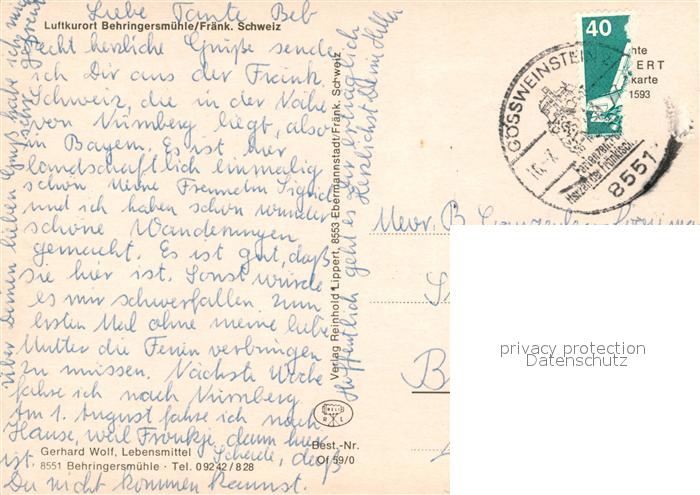 Liebe Tante Beb
Luftkurort Behringersmühle/Fränk. Schweiz
recht herzliche Grüße sende
ich Dir aus der Fränk.
Schweiz, die in der Nähe
von Nürnberg liegt, also
in Bayern. Es ist hier
landschaftlich einmalig
schön. Meine Freundin Sigrid
und ich haben schon wunder
schöne Wanderungen
gemacht. Es ist gut, daß
sie hier ist. Sonst würde
es mir schwerfallen zum
ersten Mal ohne meine liebe
Mutter die Ferien verbringen
zu müssen. Nächste Woche
fahre ich nach Nürnberg
Am 1. August fahre ich nach
Hause, weil Fraukje dann hier
ist. Schade, daß
Du nicht kommen kannst.
Gerhard Wolf, Lebensmittel
8551 Behringersmühle · Tel. 09242/828
über Deinen lieben Gruß habe ich mich
sehr gefreut
Verlag Reinhold Lippert, 8553 Ebermannstadt/Fränk. Schweiz
Hoffentlich geht es Dir erträglich
Herzlichst Deine
Best.-Nr.
Of 59/0
40
hte
ERT
karte
1593
GÖSSWEINSTEIN
8551
Mevr. B.
B
privacy protection
Datenschutz